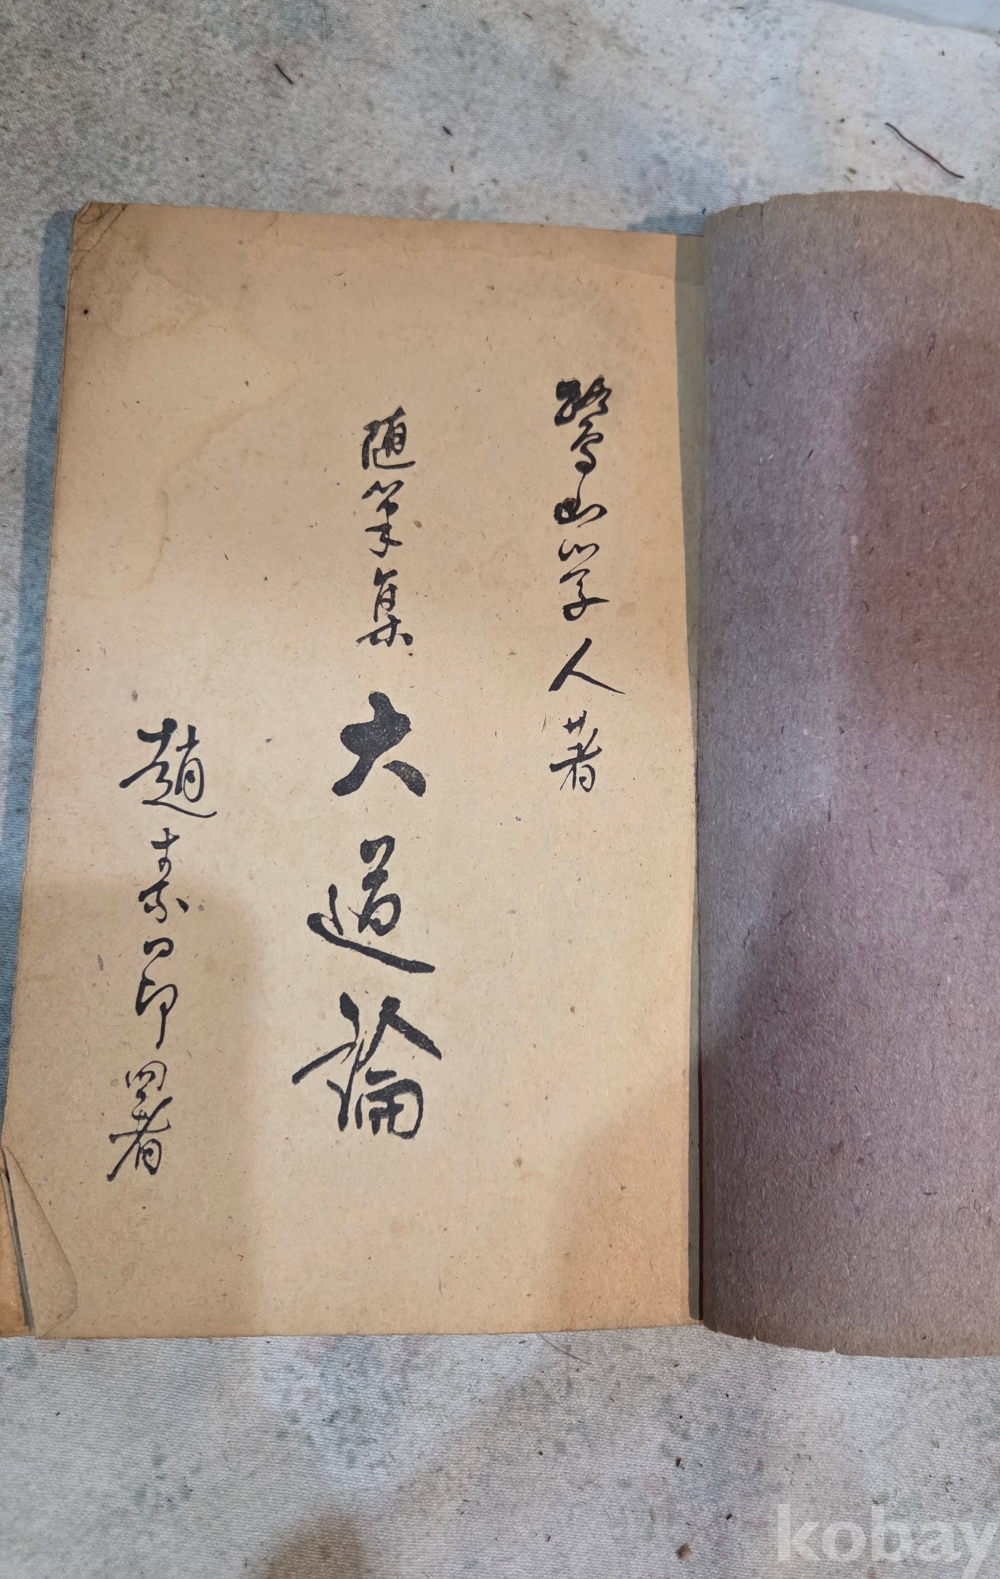 鷺山学人著
随筆集 大道論
趙素昂署
kobay